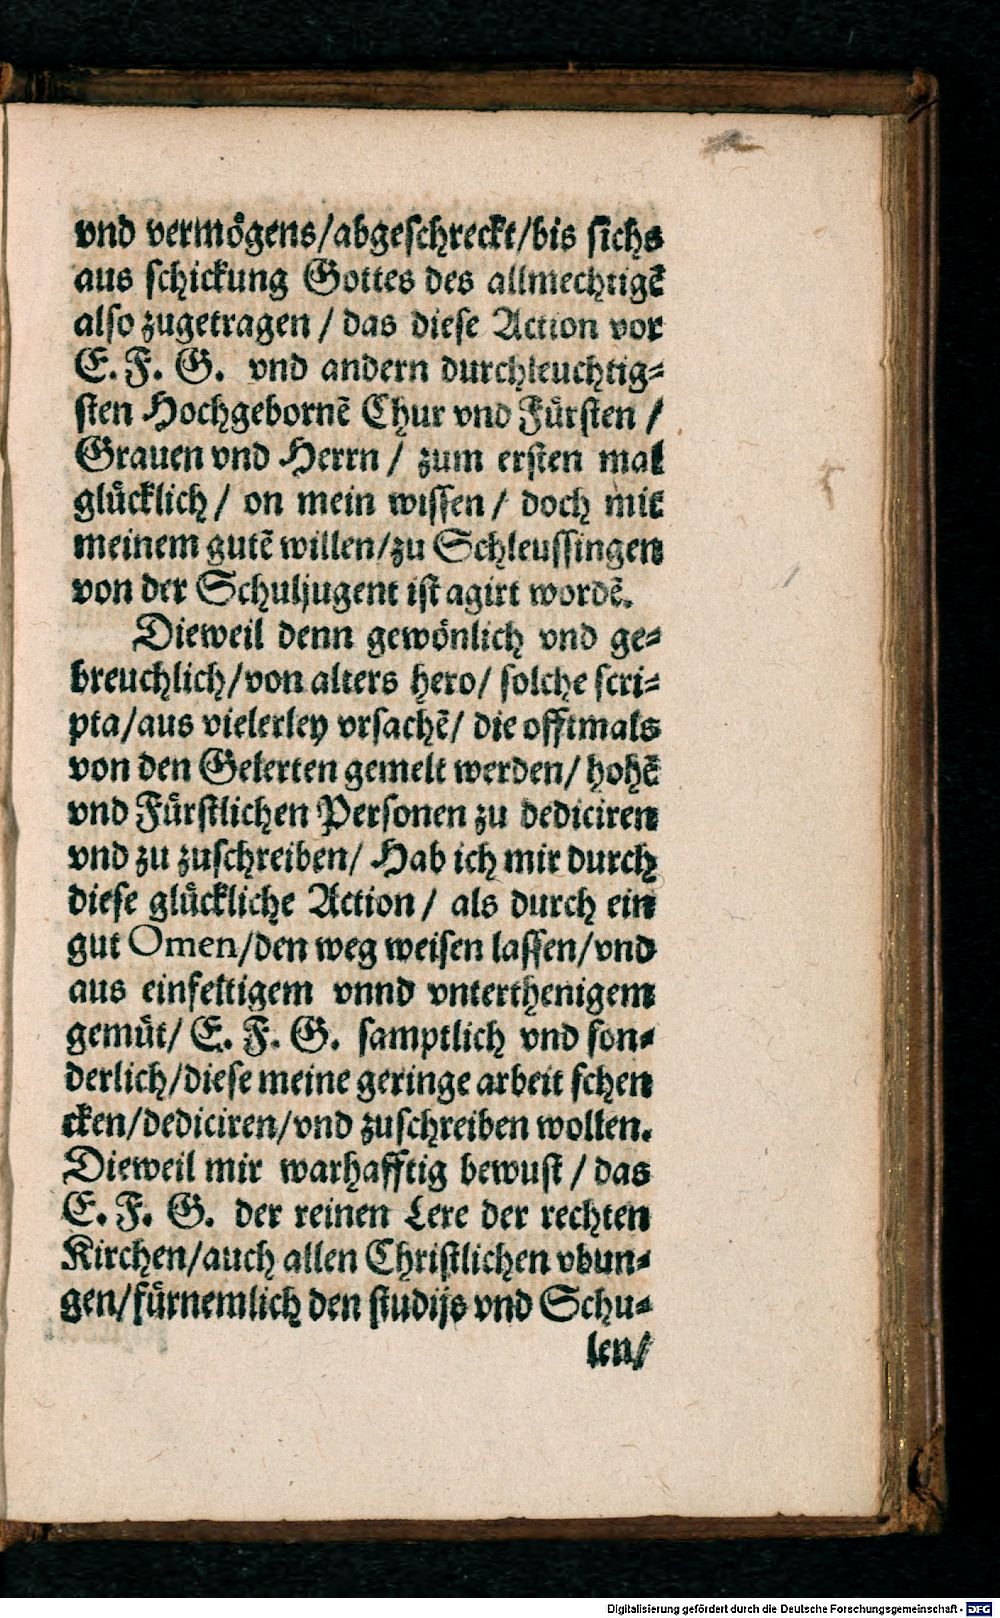 vnd vermoͤgens/abgeschreckt/bis sichs
aus schickung Gottes des allmechtigē
also zugetragen / das diese Action vor
E. F. G. vnd andern durchleuchtig=
sten Hochgebornē Chur vnd Fuͤrsten /
Grauen vnd Herrn / zum ersten mal
gluͤcklich / on mein wissen / doch mit
meinem gutē willen/zu Schleussingen
von der Schuljugent ist agirt wordē.
Dieweil denn gewoͤnlich vnd ge=
breuchlich/von alters hero/ solche scri=
pta/aus vielerley vrsachē/ die offtmals
von den Gelerten gemelt werden/ hohē
vnd Fuͤrstlichen Personen zu dediciren
vnd zu zuschreiben/ Hab ich mir durch
diese gluͤckliche Action / als durch ein
gut Omen/den weg weisen lassen/vnd
aus einfeltigem vnnd vnterthenigem
gemuͤt/ E. F. G. samptlich vnd son=
derlich/diese meine geringe arbeit schen
cken/dediciren/vnd zuschreiben wollen.
Dieweil mir warhafftig bewust / das
E. F. G. der reinen Lere der rechten
Kirchen/auch allen Christlichen vbun=
gen/fuͤrnemlich den studijs vnd Schu=
len/
Digitalisierung gefördert durch die Deutsche Forschungsgemeinschaft - DFG